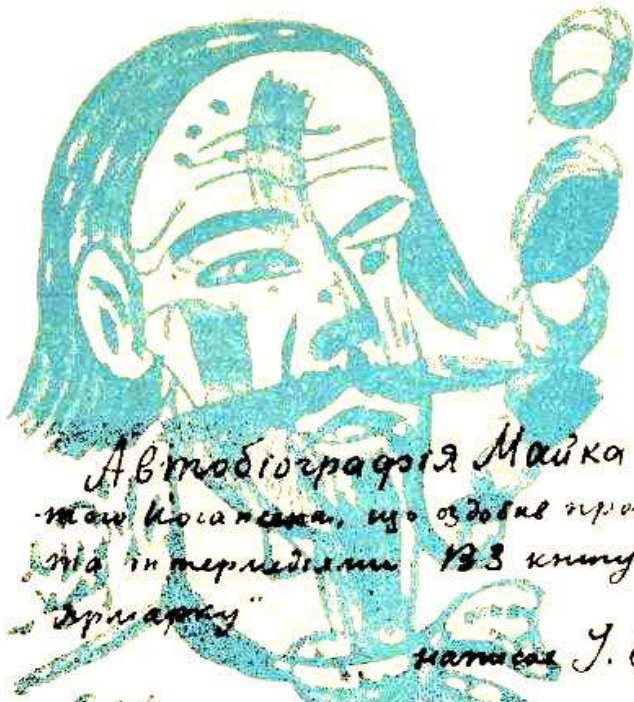 Автобіографія Майка
Йогансена, що оздобив про
та інтермедіями 133 книгу
Ярмарку"
написав